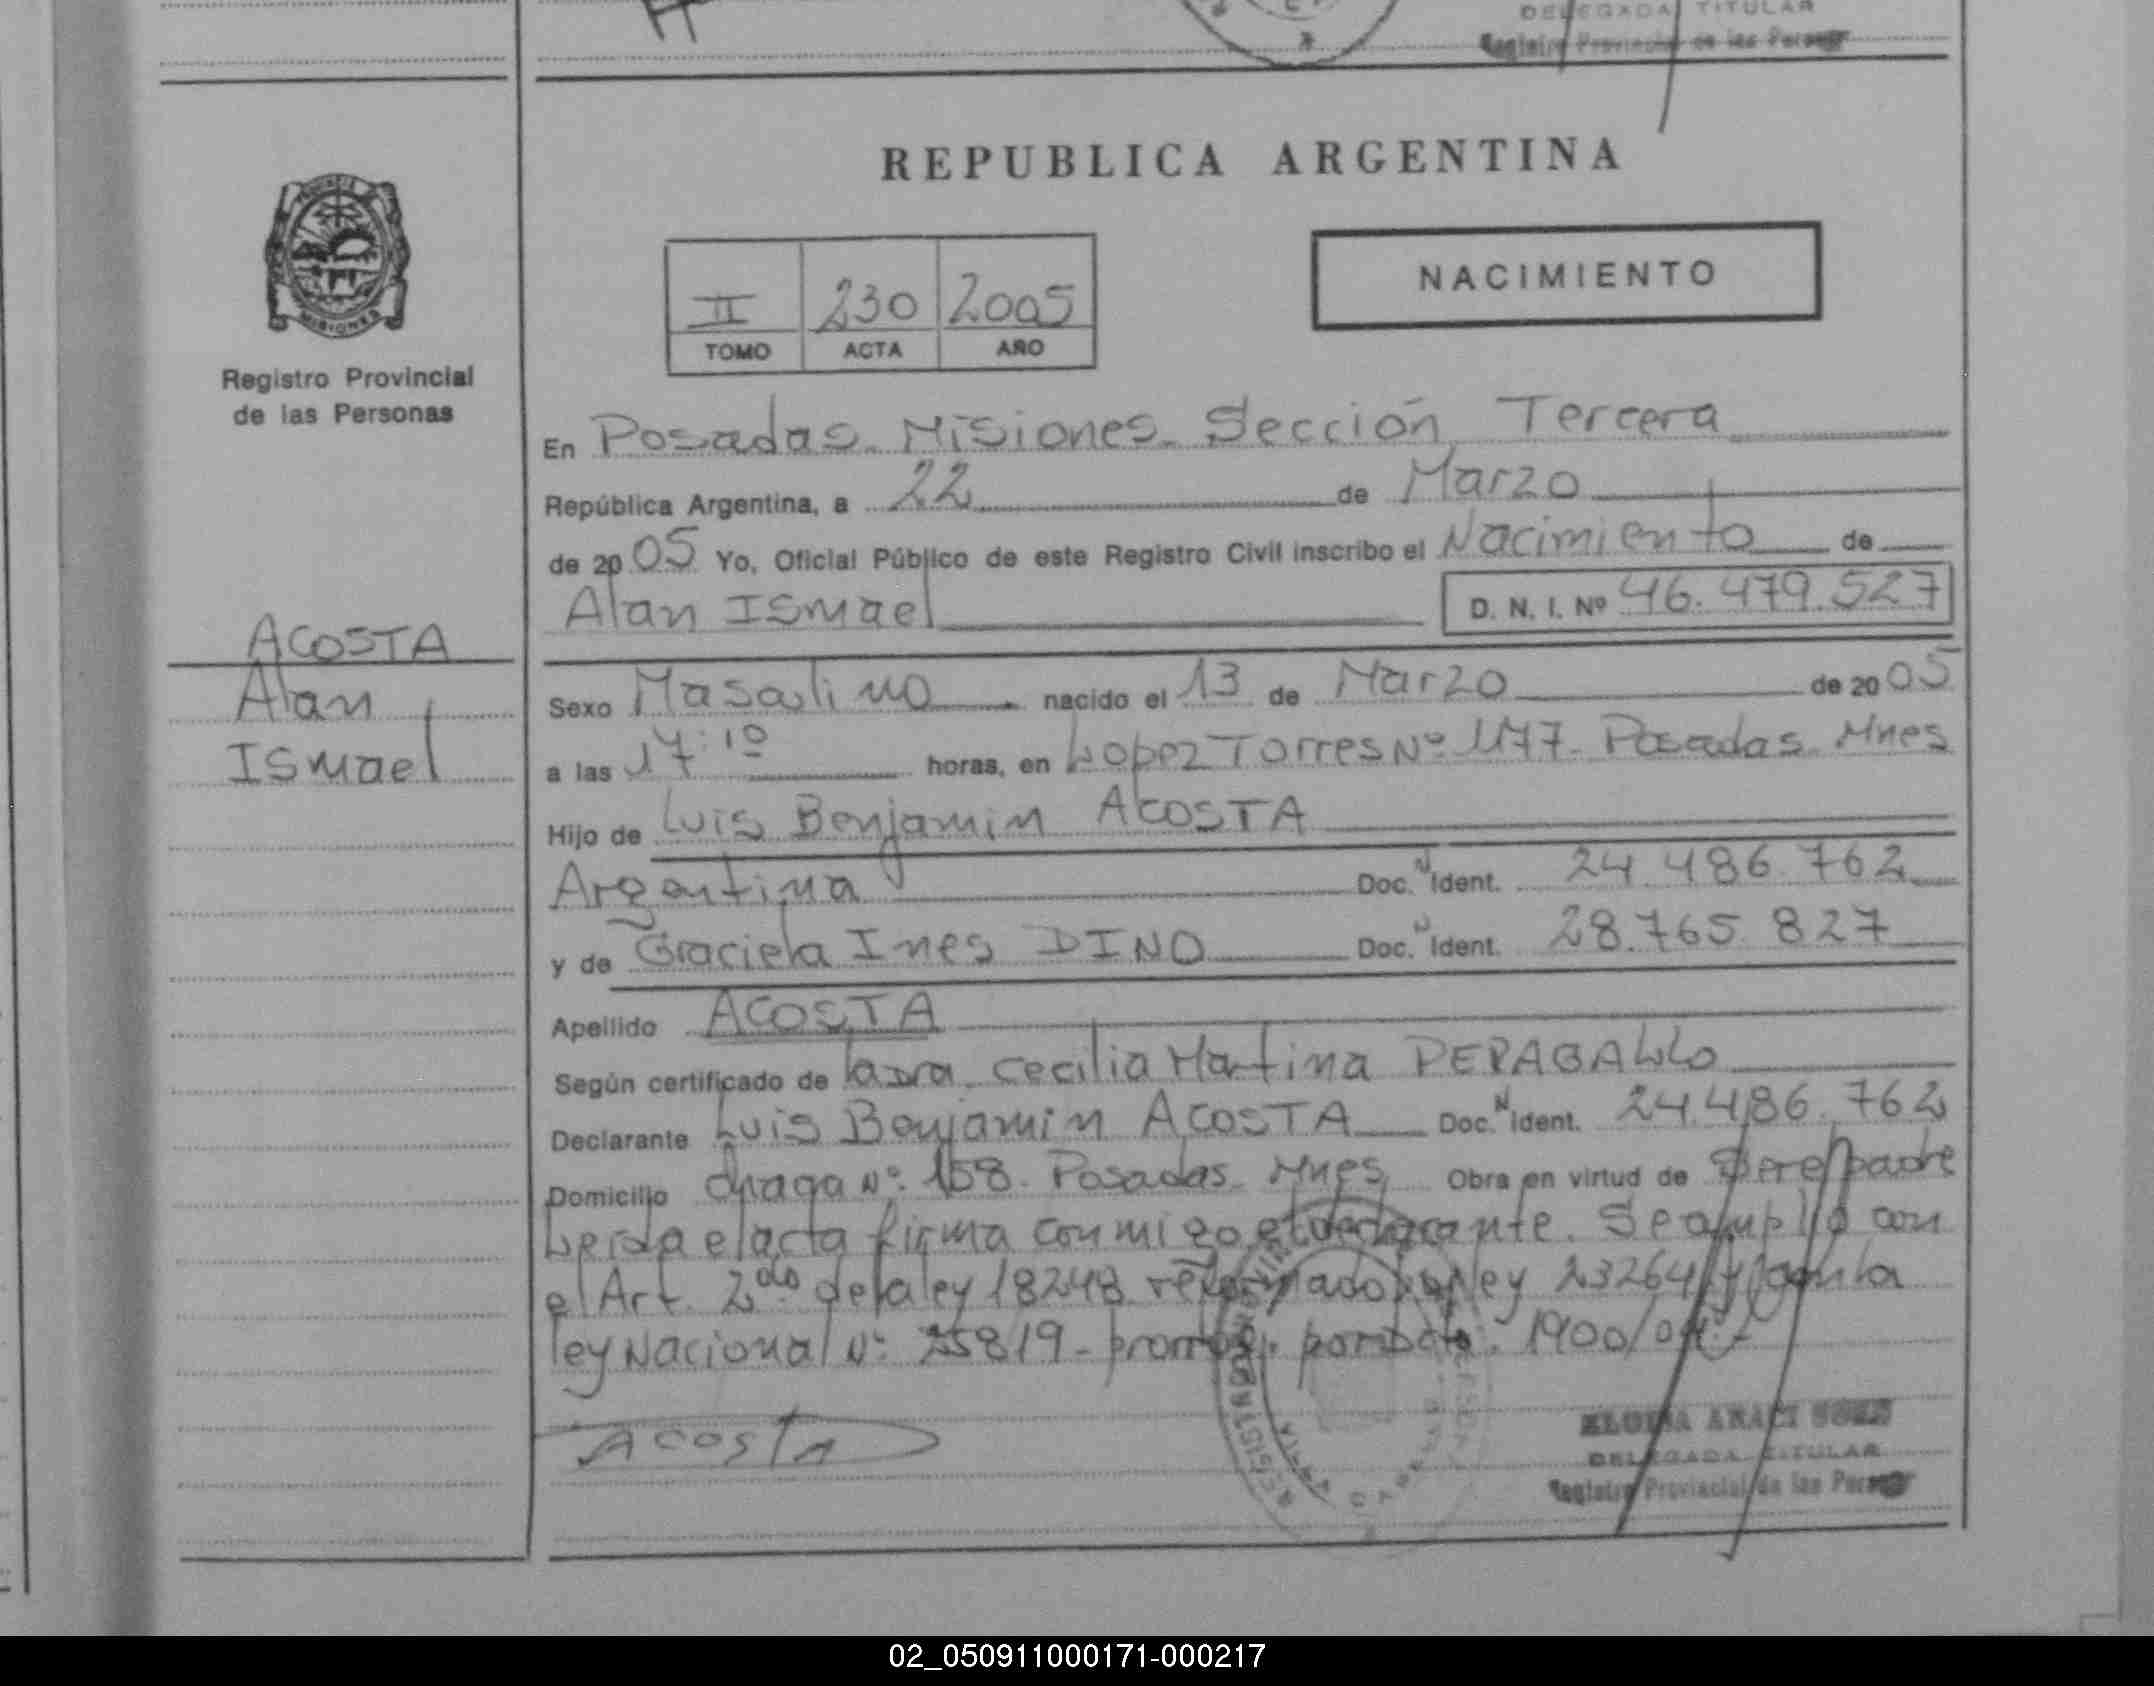 DELEGADA TITULAR
Registro Provincial de las Personas
REPUBLICA ARGENTINA
NACIMIENTO
II 230 2005
TOMO ACTA AÑO
MISIONES
Registro Provincial
de las Personas
ACOSTA
Alan
Ismael
En Posadas Misiones Sección Tercera
República Argentina, a 22 de Marzo
de 2005 Yo, Oficial Público de este Registro Civil inscribo el Nacimiento de
Alan Ismael D. N. I. Nº 46.479.527
Sexo Masculino nacido el 13 de Marzo de 2005
a las 17:10 horas, en Lopez Torres Nº 1177 Posadas Mnes
Hijo de Luis Benjamin ACOSTA
Argentina Doc. N Ident. 24.486.762
y de Graciela Ines DINO Doc. N Ident. 28.765.827
Apellido ACOSTA
Según certificado de la Dra. Cecilia Martina PERAGALLO
Declarante Luis Benjamin ACOSTA Doc. N Ident. 24.486.762
Domicilio Nº 158 Posadas Mnes Obra en virtud de padre
Leida el acta firma conmigo el declarante. Se amplió con
el Art. 2do de la ley 18248 reformado ley 23264 y con la
ley Nacional Nº 25819- 1900/04.-
Acosta
DELEGADA TITULAR
Registro Provincial de las Personas
02_050911000171-000217